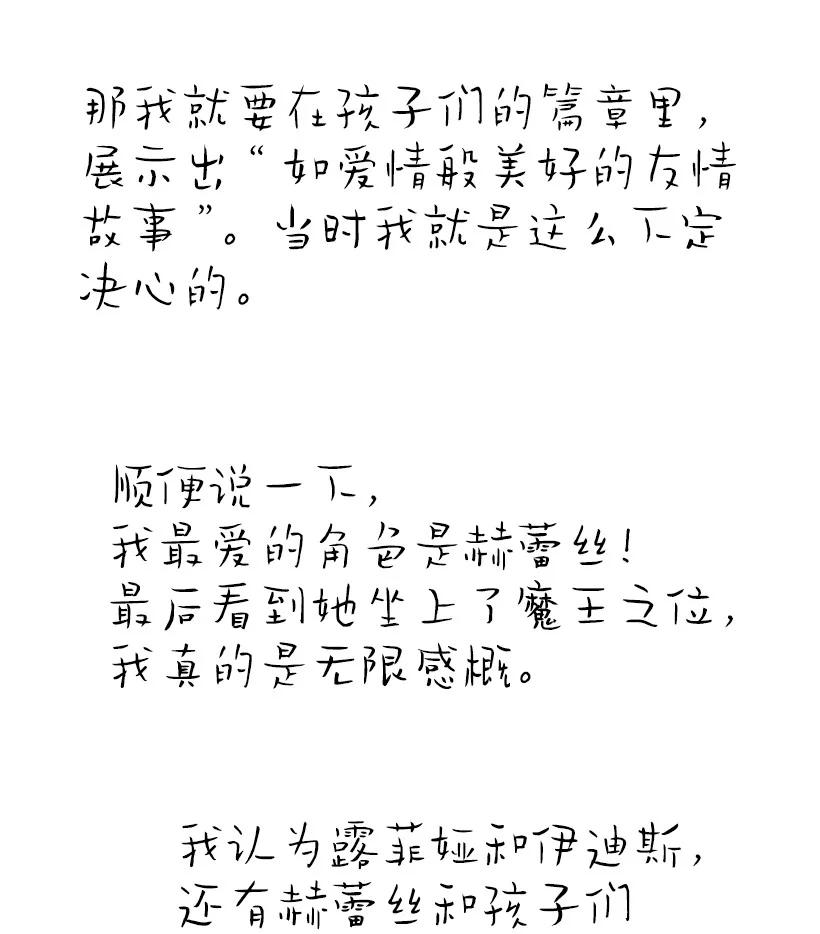 那我就要在孩子们的篇章里，
展示出“如爱情般美好的友情
故事”。当时我就是这么下定
决心的。
顺便说一下，
我最爱的角色是赫蕾丝！
最后看到她坐上了魔王之位，
我真的是无限感概。
我认为露菲娅和伊迪斯，
还有赫蕾丝和孩子们